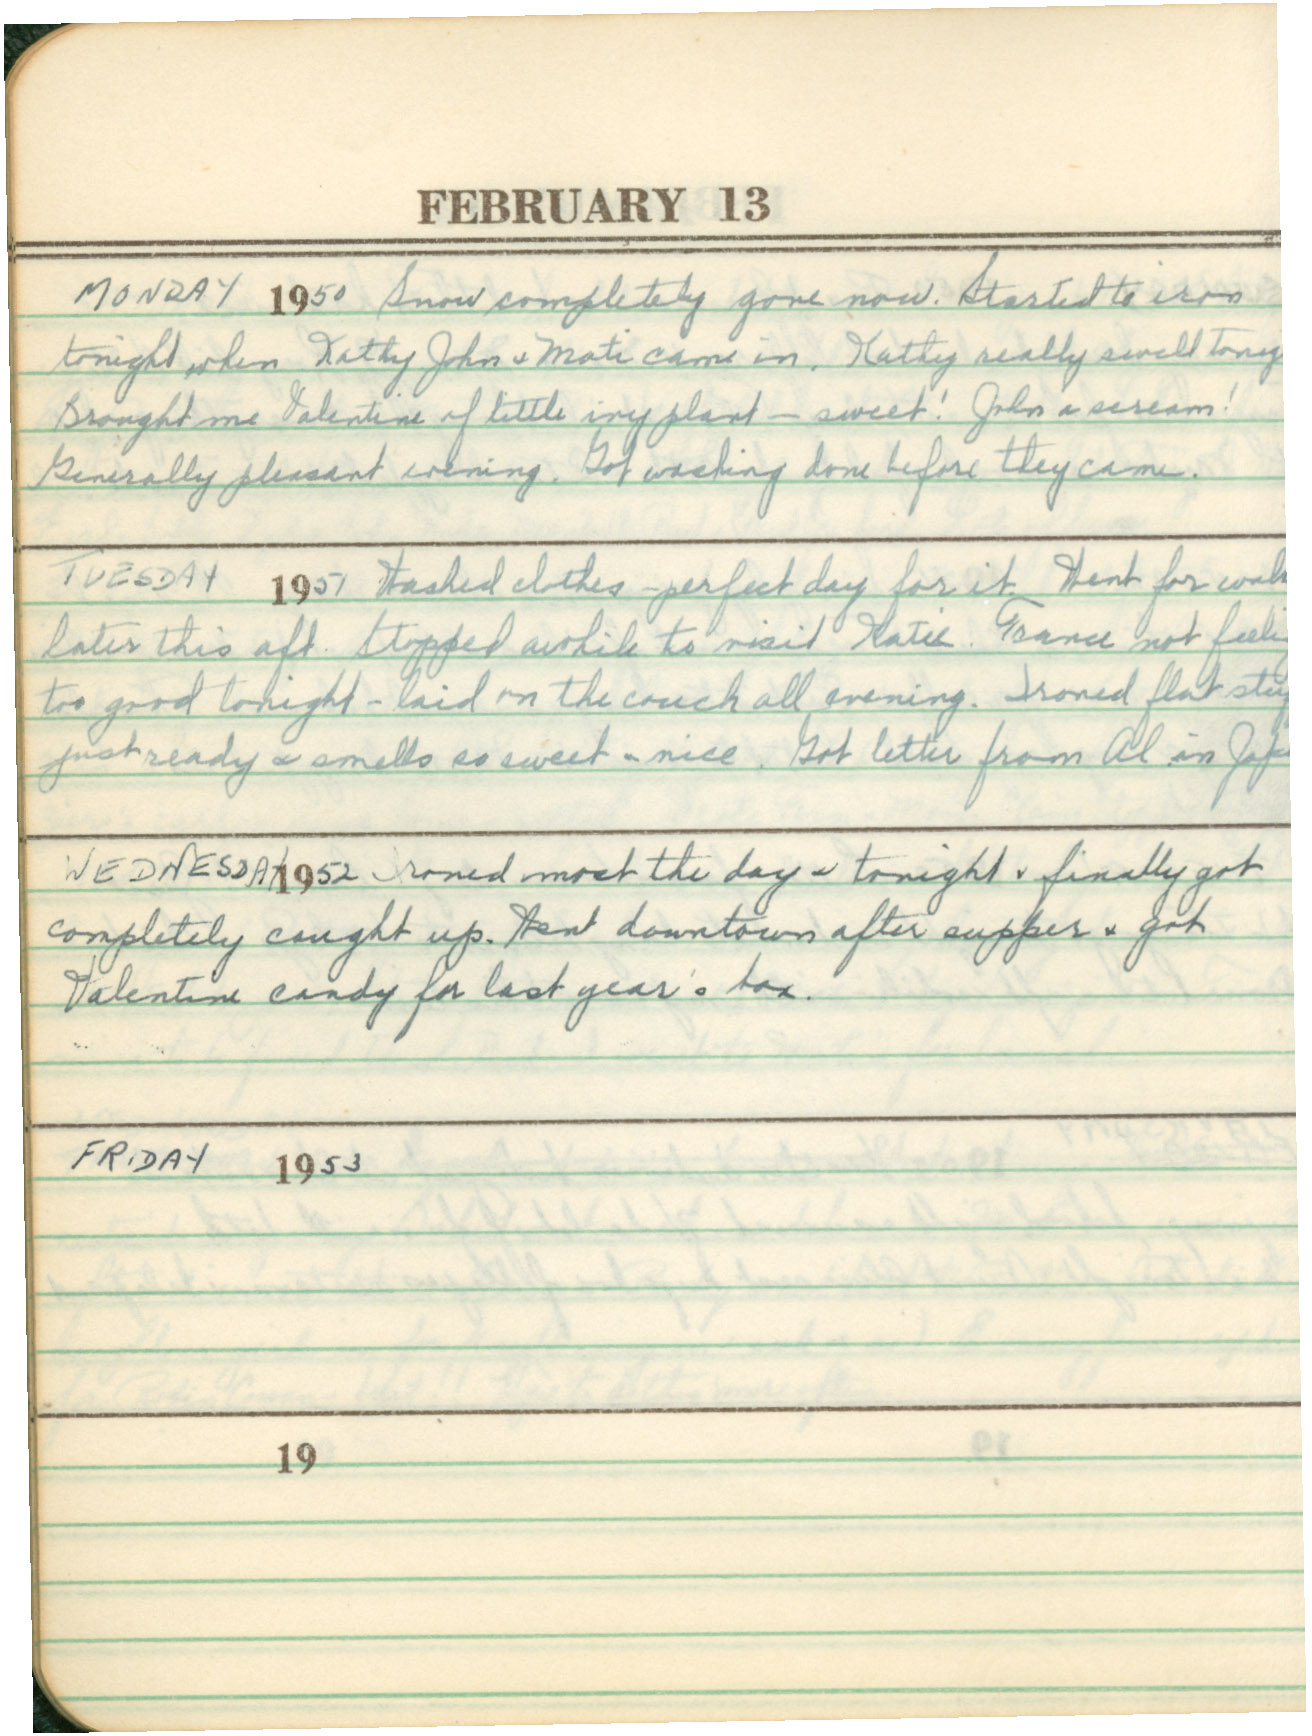 FEBRUARY 13
MONDAY 1950 Snow completely gone now. Started to iron
tonight when Kathy John & Mati came in. Kathy really swell tonig
Brought me Valentine of little ivy plant – sweet! John a scream!
Generally pleasant evening. Got washing done before they came.
TUESDAY 1951 Washed clothes – perfect day for it. Went for walk
later this aft. Stopped awhile to visit Katie. France not feelin
too good tonight – laid on the couch all evening. Ironed flat stuf
just ready & smells so sweet & nice. Got letter from Al in Jap
WEDNESDAY 1952 Ironed most the day & tonight & finally got
completely caught up. Went downtown after supper & got
Valentine candy for last year's box.
FRIDAY 1953
19